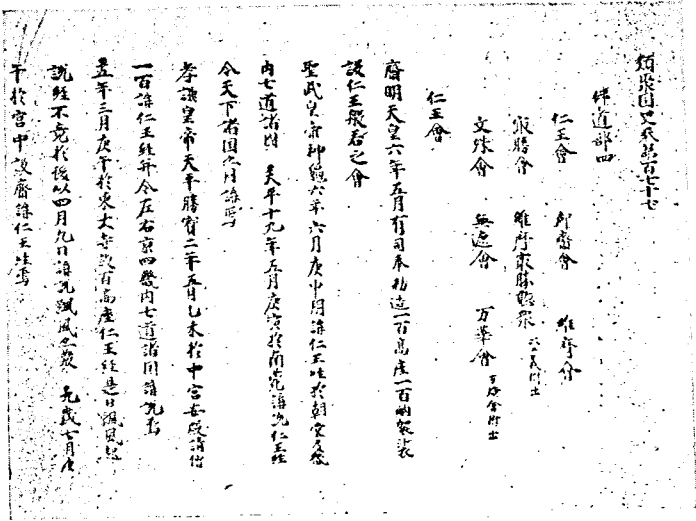 類聚国史巻第百七十七
佛道部四
仁王會 御齋會 維摩會
最勝會 維摩最勝竪義
文殊會 無遮會 万華會
仁王會
齊明天皇六年五月有司奉勅造一百高座一百衲袈裟
設仁王般若之會
聖武皇帝神龜六年六月庚申開講仁王經於朝堂及畿
内七道諸國 天平十九年五月庚寅於南苑講説仁王經
令天下諸国亦同講焉
孝謙皇帝天平勝寳二年五月乙未於中宮安殿請僧
一百講仁王經并令左右京四畿内七道諸国講説焉
五年三月庚午於東大寺設百高座仁王經是日飄風起
説經不竟於後以四月九日講説飄風亦發 元歳七月庚
午於宮中設齋講仁王經焉